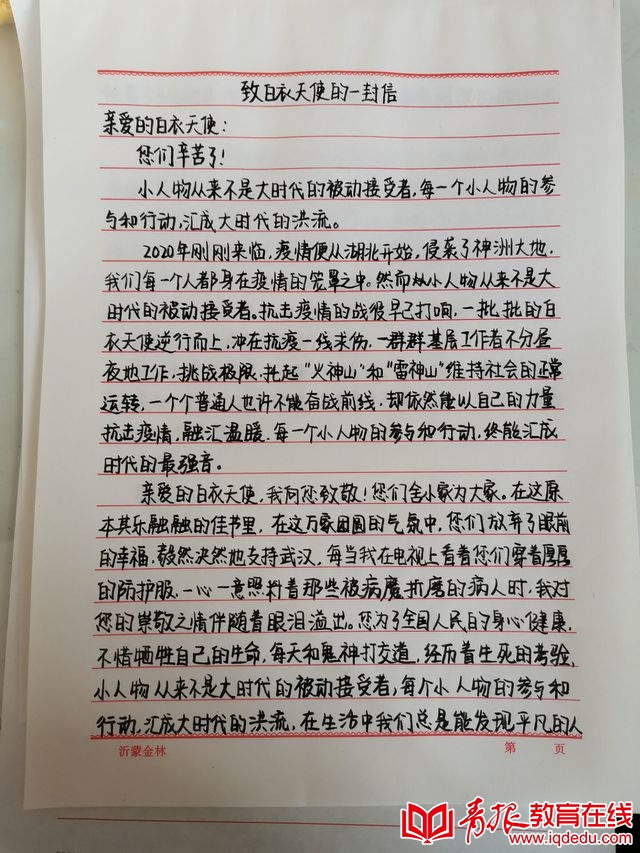 致白衣天使的一封信
亲爱的白衣天使：
您们辛苦了！
小人物从来不是大时代的被动接受者，每一个小人物的参
与和行动，汇成大时代的洪流。
2020年刚刚来临，疫情便从湖北开始，侵袭了神洲大地，
我们每一个人都身在疫情的笼罩之中。然而小人物从来不是大
时代的被动接受者。抗击疫情的战役早已打响，一批批的白
衣天使逆行而上，冲在抗疫一线求伤，一群群基层工作者不分昼
夜地工作，挑战极限，托起“火神山”和“雷神山”维持社会的正常
运转，一个个普通人也许不能奋战前线，却依然能以自己的力量
抗击疫情，融汇温暖，每一个小人物的参与和行动，终能汇成
时代的最强音。
亲爱的白衣天使，我向您致敬！您们舍小家为大家。在这原
本其乐融融的佳节里，在这万家团圆的气氛中，您们放弃了眼前
的幸福，毅然决然地支持武汉，每当我在电视上看着您们穿着厚厚
的防护服，一心一意照料着那些被病魔折磨的病人时，我对
您的崇敬之情伴随着眼泪溢出。您为了全国人民的身心健康，
不惜牺牲自己的生命，每天和鬼神打交道，经历着生死的考验，
小人物从来不是大时代的被动接受者，每个小人物的参与和
行动，汇成大时代的洪流，在生活中我们总是能发现平凡的人
沂蒙金林 第 页
青报教育在线
www.iqdedu.com